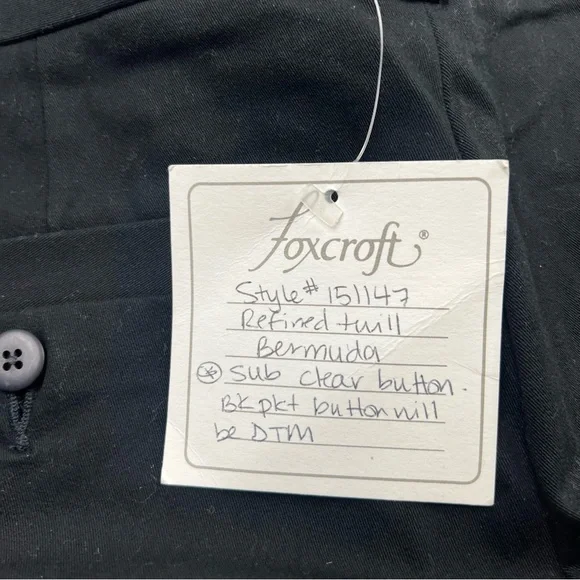 Foxcroft®
Style# 151147
Refined twill
Bermuda
* Sub clear button.
BK pkt button will
be DTM